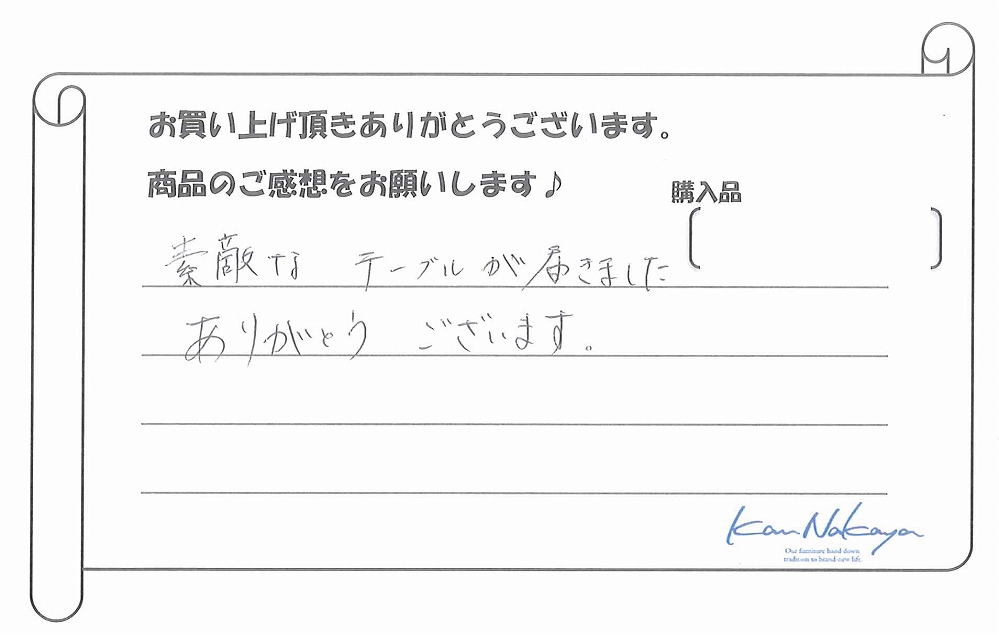 お買い上げ頂きありがとうございます。
商品のご感想をお願いします♪
購入品
素敵な テーブルが届きました
ありがとう ございます。
KanNakaya
Our furniture hand down
tradition to brand-new life.